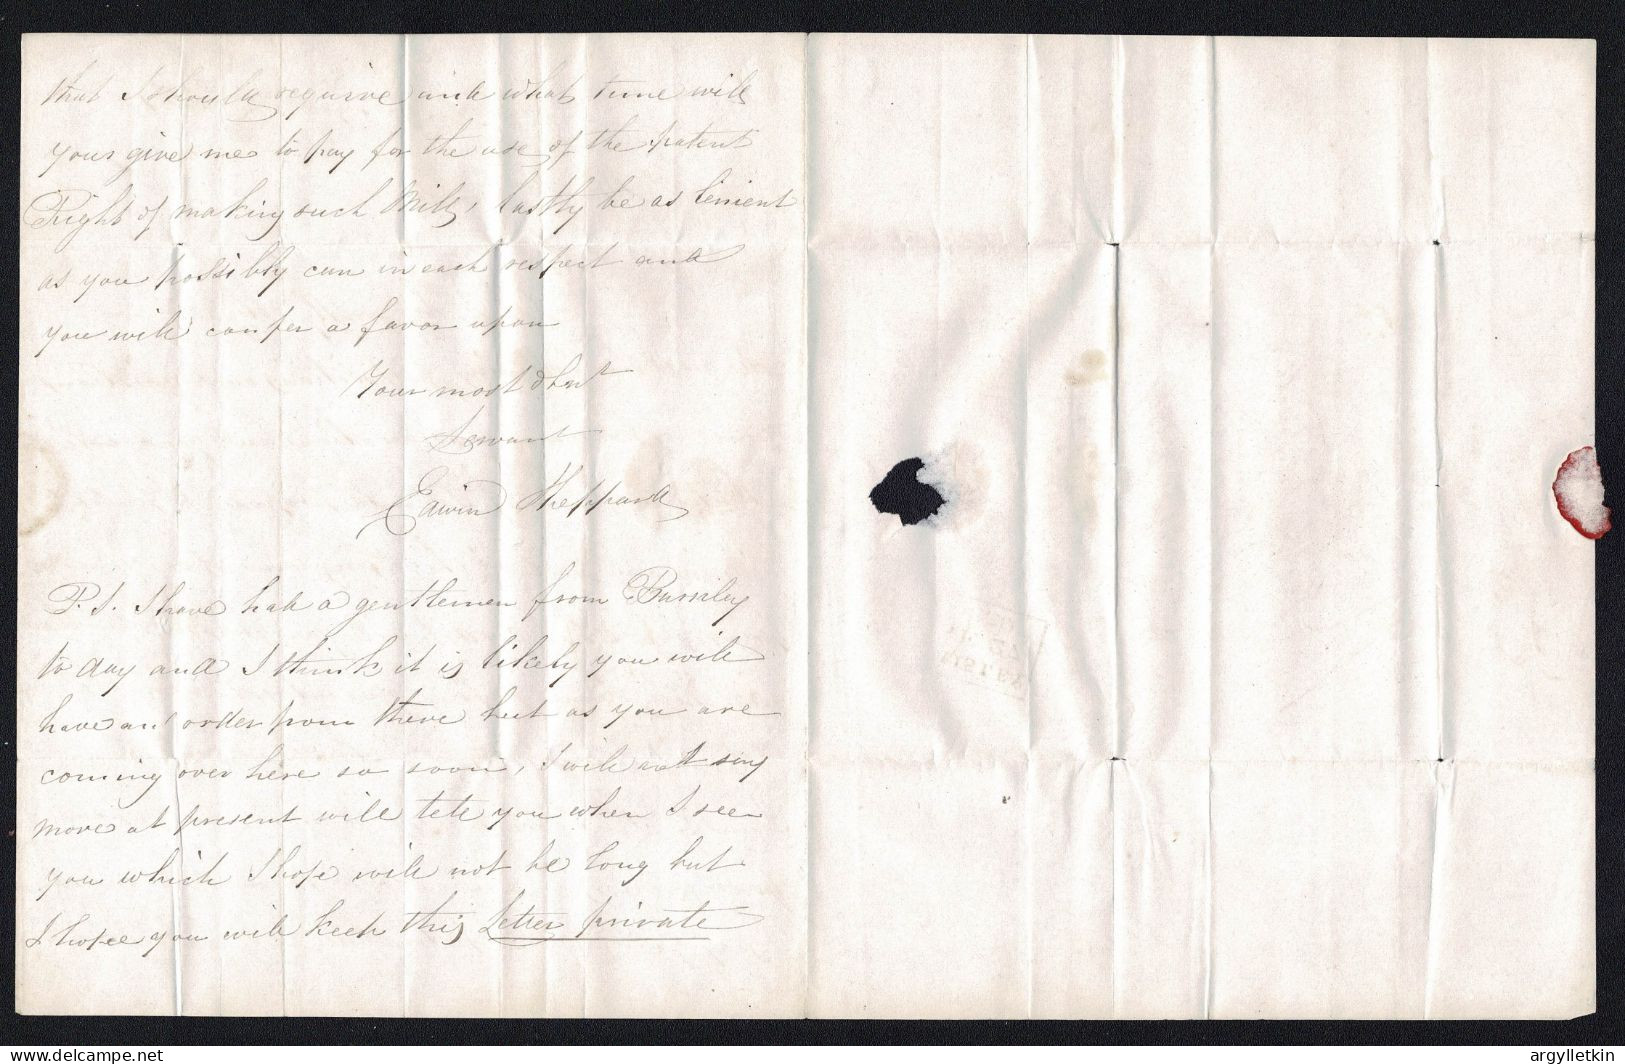 that I should require and what time will
your give me to pay for the use of the patent
Right of making such Mill, lastly be as lenient
as you possibly can in each respect and
you will confer a favor upon
Your most obent
Servant
Edwin Sheppard
P.S. I have had a gentlemen from
to day and I think it is likely you will
have an order from there but as you are
coming over here so soon, I will not say
more at present will tell you when I see
you which I hope will not be long but
I hope you will keep this Letter private
delcampe.net
argylletkin